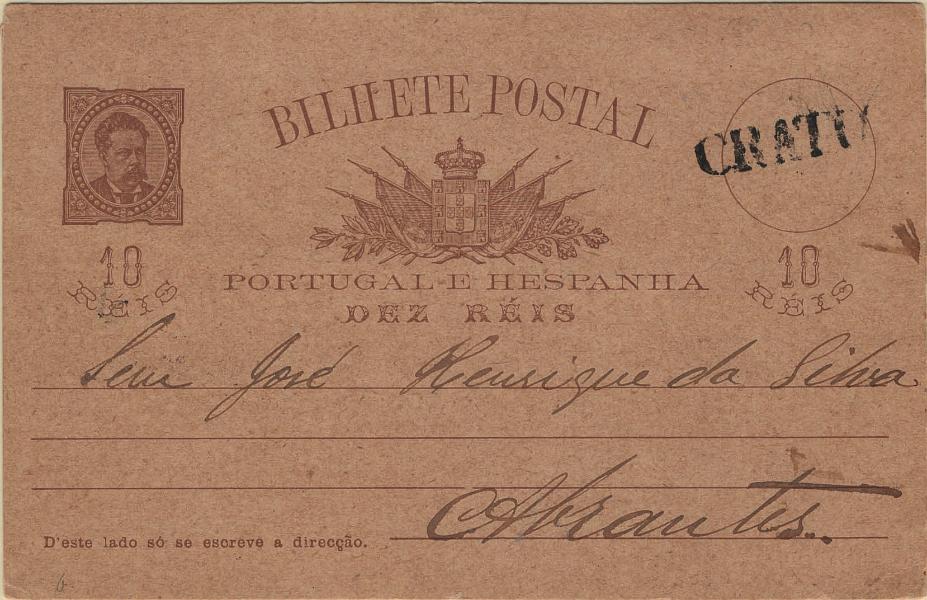 BILHETE POSTAL
CRATO
10 RÉIS
10 RÉIS
PORTUGAL E HESPANHA
DEZ RÉIS
José Henrique da Silva
Abrantes.
D'este lado só se escreve a direcção.
6